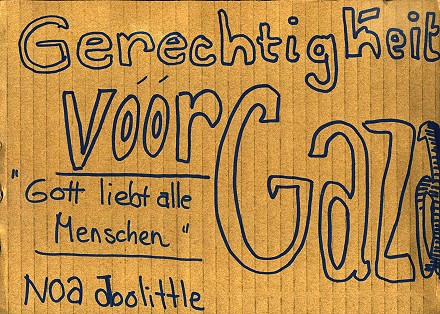 Gerechtigkeit
vóór Gaza
"Gott liebt alle
Menschen"
Noa doolittle